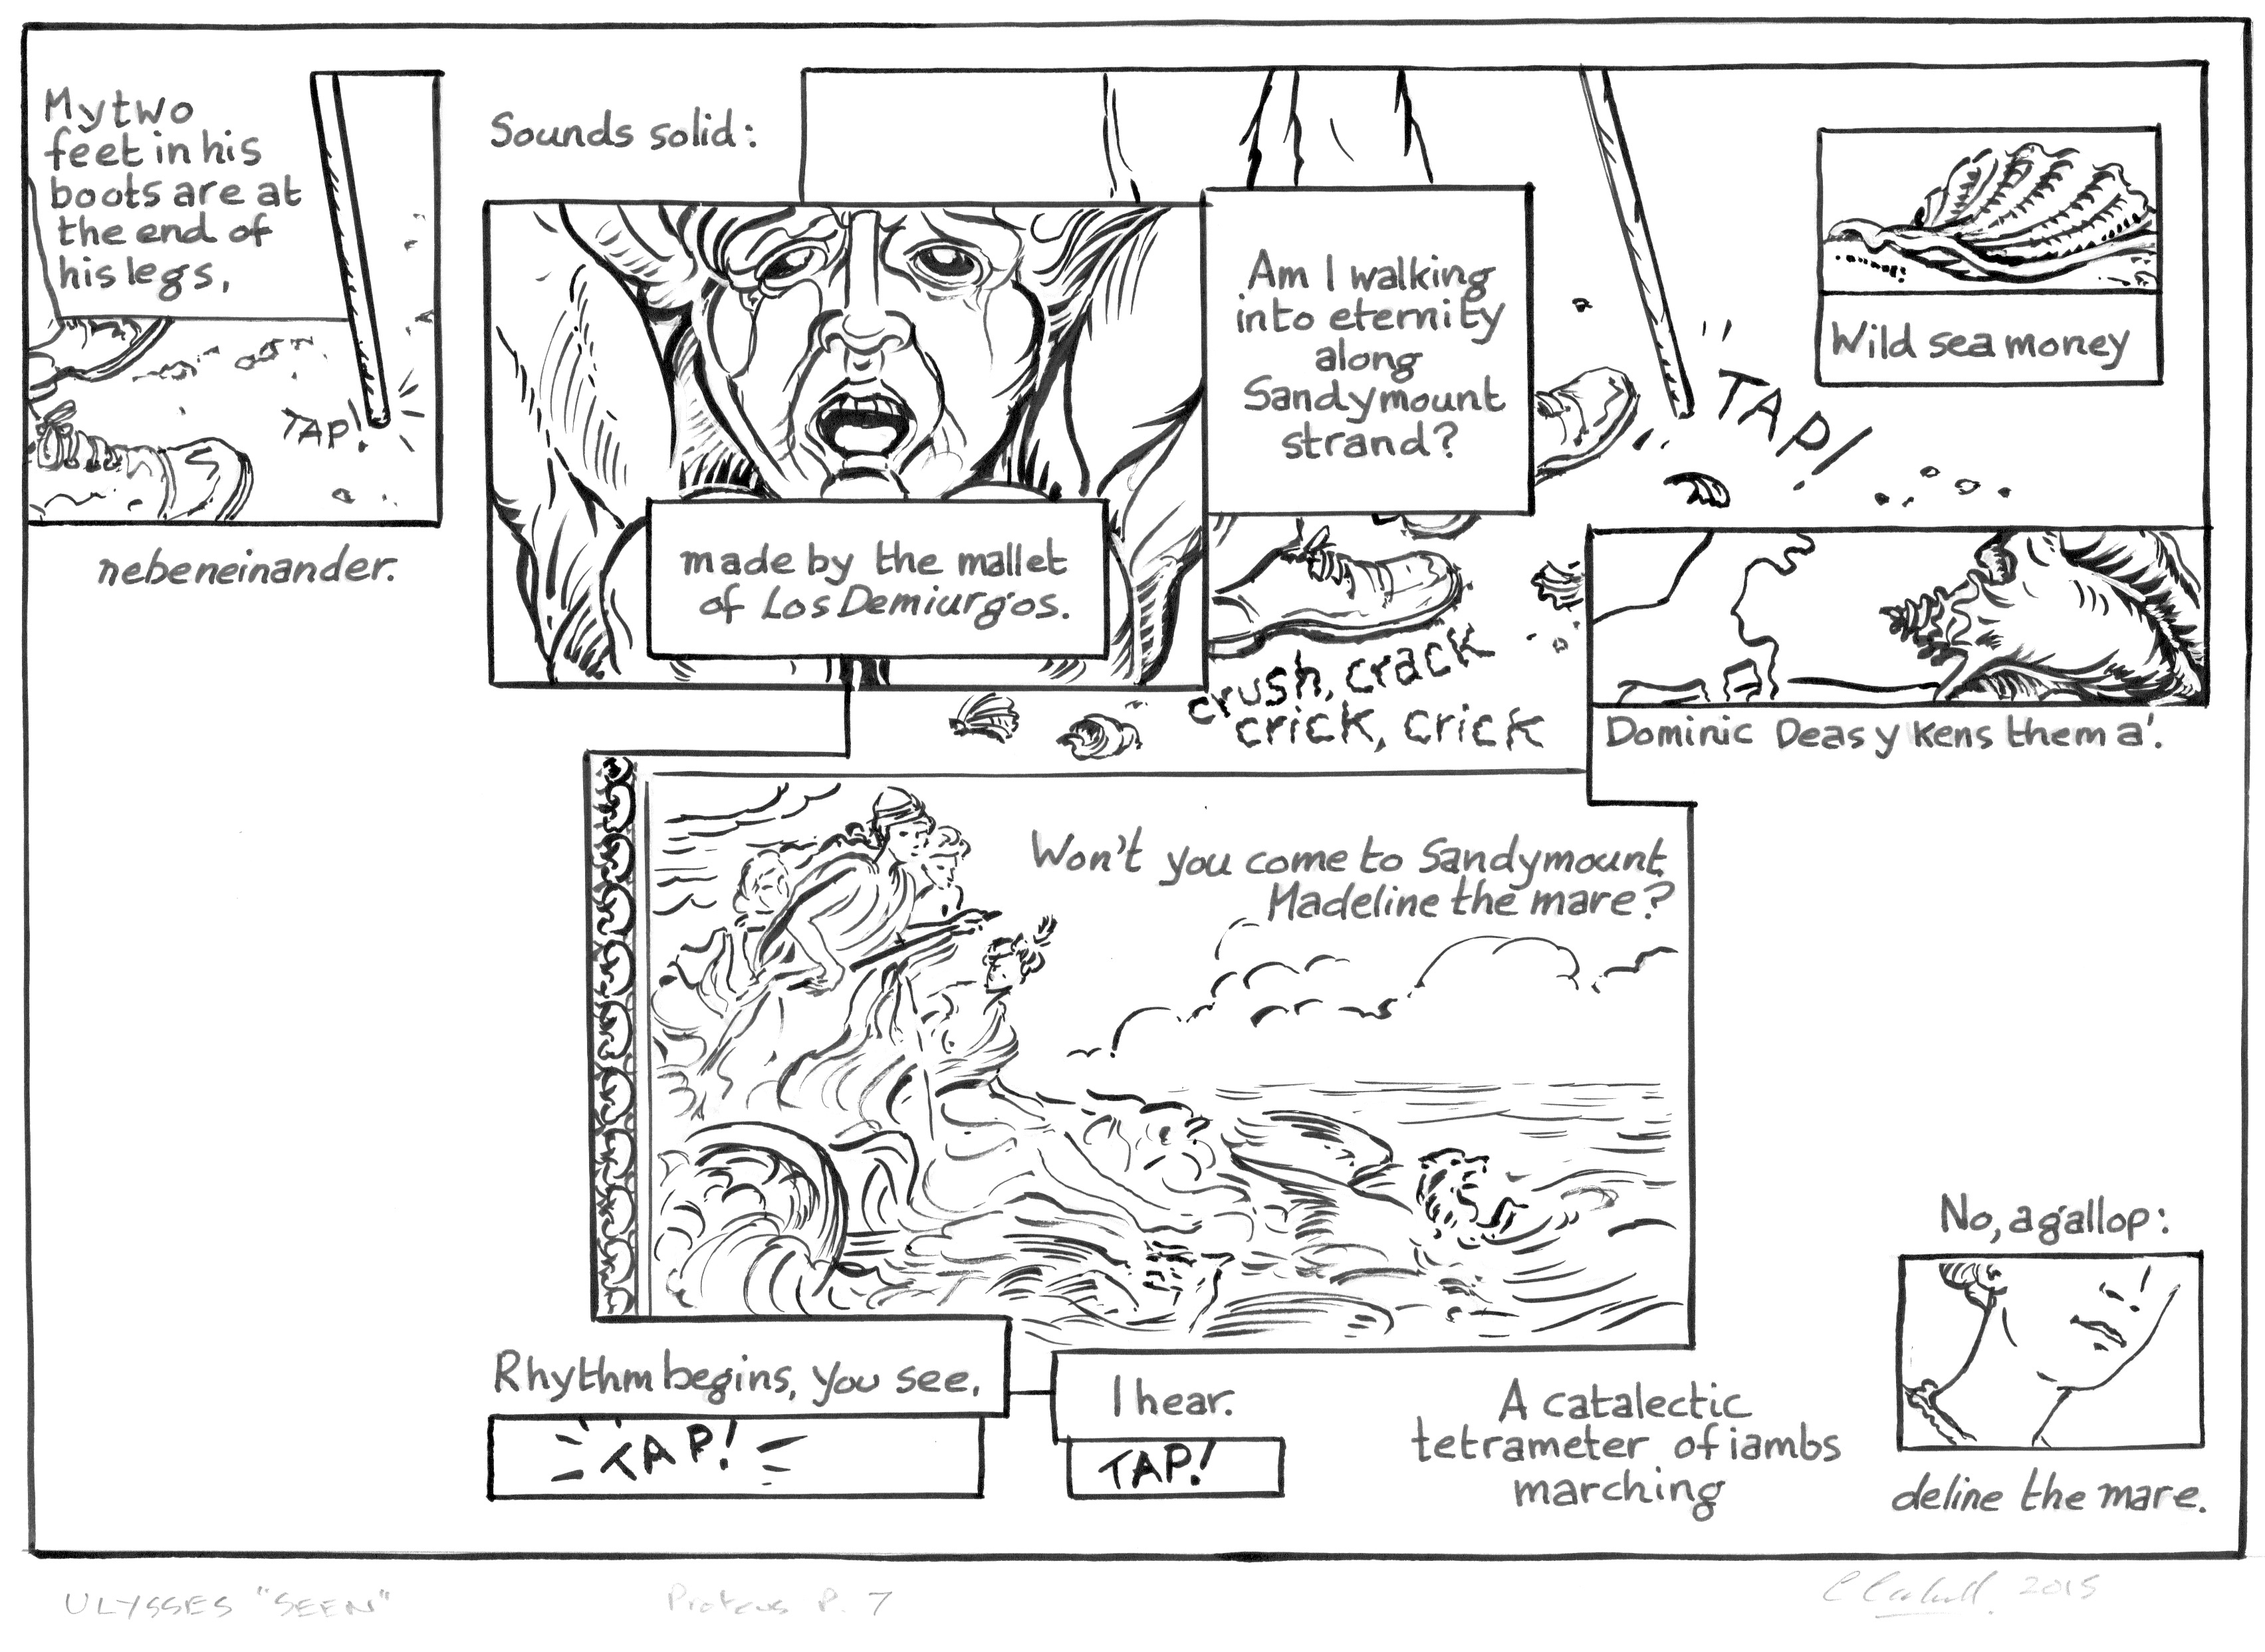 My two
feet in his
boots are at
the end of
his legs,
TAP!
nebeneinander.
Sounds solid:
made by the mallet
of Los Demiurgos.
Am I walking
into eternity
along
Sandymount
strand?
TAP!
crush, crack
crick, crick
Wild sea money
Dominic Deasy kens them a'.
Won't you come to Sandymount
Madeline the mare?
Rhythm begins, you see.
TAP!
I hear.
TAP!
A catalectic
tetrameter of iambs
marching
No, agallop:
deline the mare.
ULYSSES "SEEN"
Proteus P. 7
2015